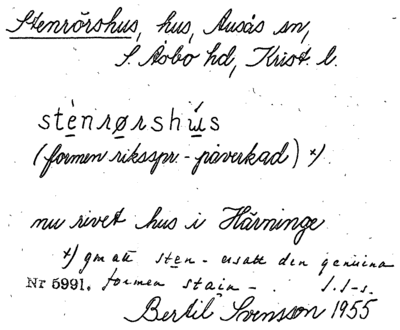 Stenrörshus, hus, Ausås sn,
S. Åsbo hd, Krist. l.
stènrørshús
(formen riksspr.-påverkad) *)
nu rivet hus i Härninge
*) gm att sten- ersatt den genuina
Nr 5991. formen stain- . S.I-s.
Bertil Svensson 1955